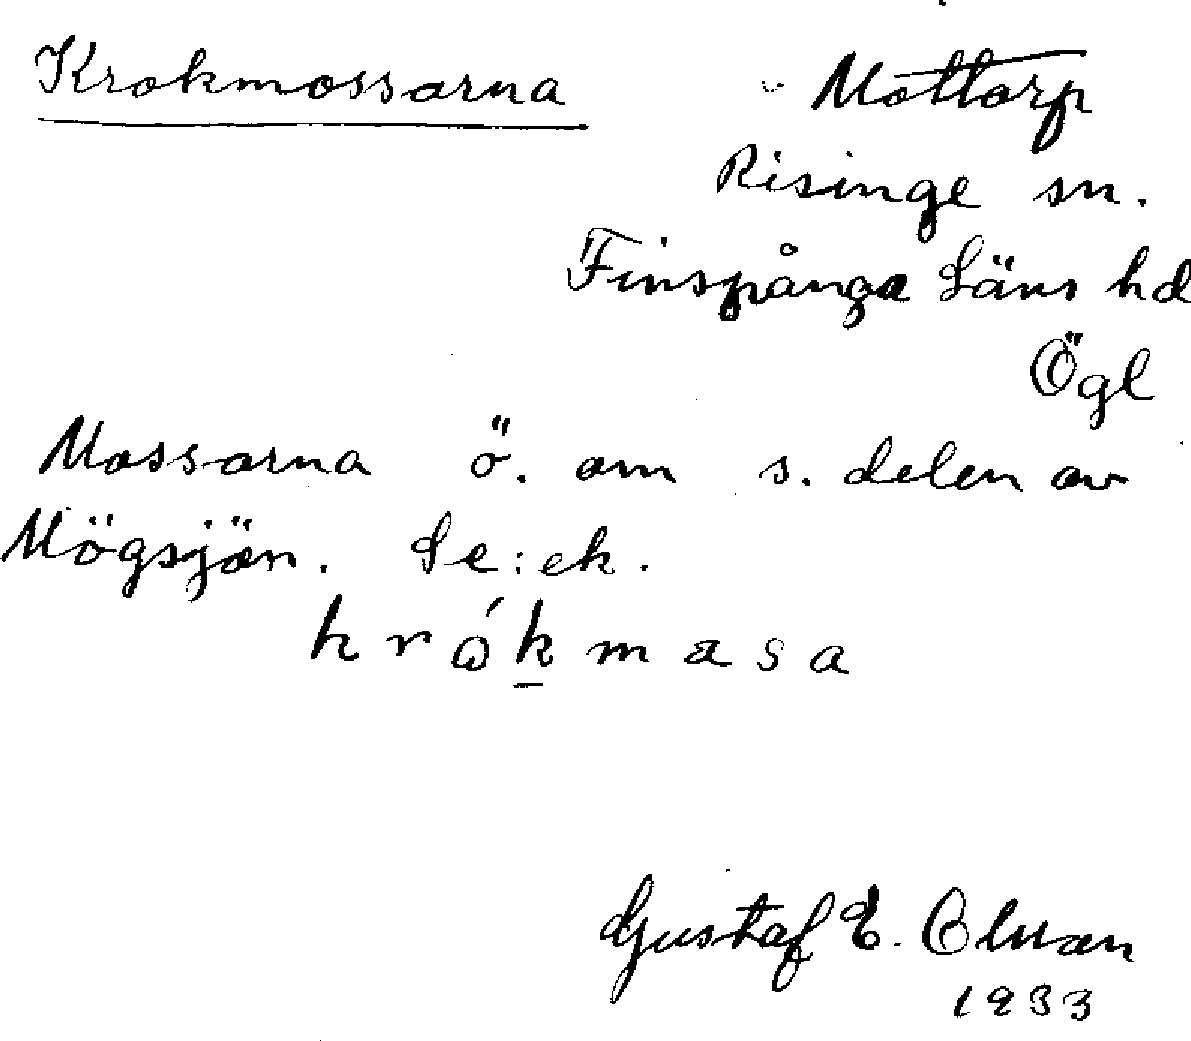 Krokmossarna
Mottorp
Risinge sn.
Finspånga Läns hd
Ögl
Mossarna ö. om s. delen av
Mögsjön. Se: ek.
krókmasa
Gustaf E.
1933